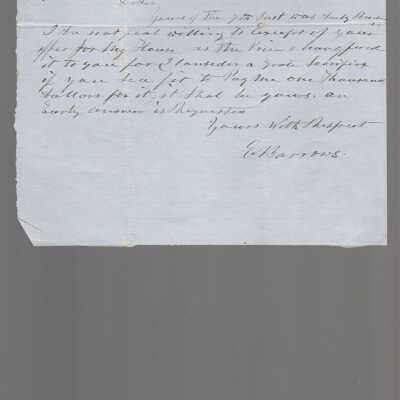 Yours of the 7th Inst was Duly Recd
I do not feel willing to Except of your
offer for My House as the Price I have offered
it to you for I Consider a Great Sacrifice
if you See fit to Pay Me one Thousand
Dollars for it, it Shal be yours. an
Early answer is Requested
Yours With Respect
E Barrows.